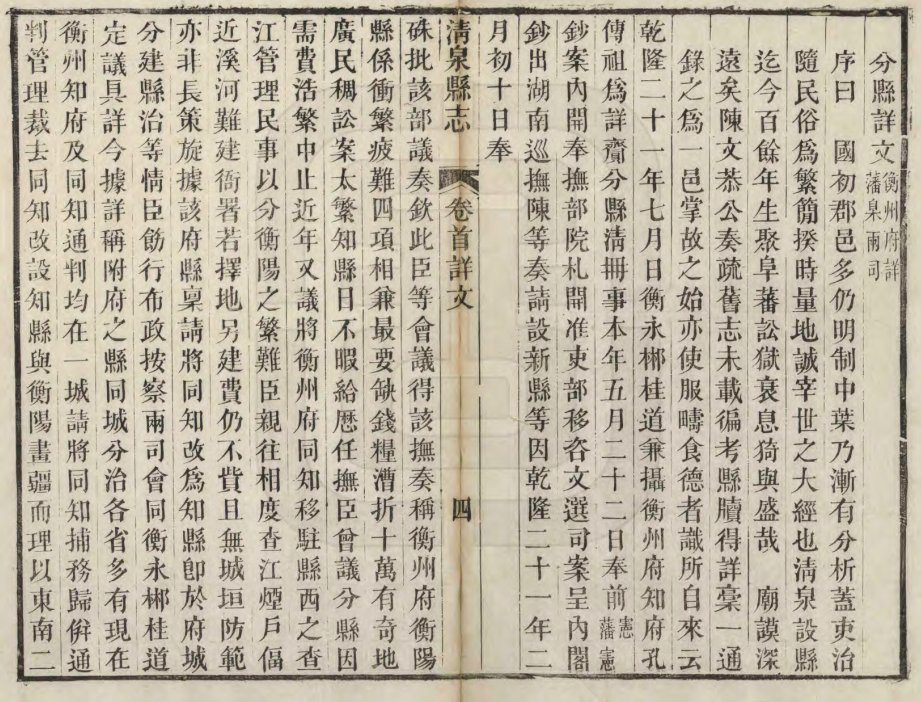 分縣詳文衡州府詳藩臬兩司
序曰　國初郡邑多仍明制中葉乃漸有分析蓋吏治
隨民俗爲繁簡揆時量地誠宰世之大經也淸泉設縣
迄今百餘年生聚阜蕃訟獄衰息猗與盛哉　廟謨深
遠矣陳文恭公奏疏舊志未載徧考縣牘得詳稾一通
錄之爲一邑掌故之始亦使服疇食德者識所自來云
乾隆二十一年七月日衡永郴桂道兼攝衡州府知府孔
傳祖爲詳賫分縣淸冊事本年五月二十二日奉前憲藩憲
鈔案內開奉撫部院札開准吏部移咨文選司案呈內閣
鈔出湖南巡撫陳等奏請設新縣等因乾隆二十一年二
月初十日奉
淸泉縣志　卷首詳文　四
硃批該部議奏欽此臣等會議得該撫奏稱衡州府衡陽
縣係衝繁疲難四項相兼最要缺錢糧漕折十萬有奇地
廣民稠訟案太繁知縣日不暇給歷任撫臣會議分縣因
需費浩繁中止近年又議將衡州府同知移駐縣西之查
江管理民事以分衡陽之繁難臣親往相度查江煙戶偪
近溪河難建衙署若擇地另建費仍不貲且無城垣防範
亦非長策旋據該府縣稟請將同知改爲知縣卽於府城
分建縣治等情臣飭行布政按察兩司會同衡永郴桂道
定議具詳今據詳稱附府之縣同城分治各省多有現在
衡州知府及同知通判均在一城請將同知捕務歸併通
判管理裁去同知改設知縣與衡陽畫疆而理以東南二